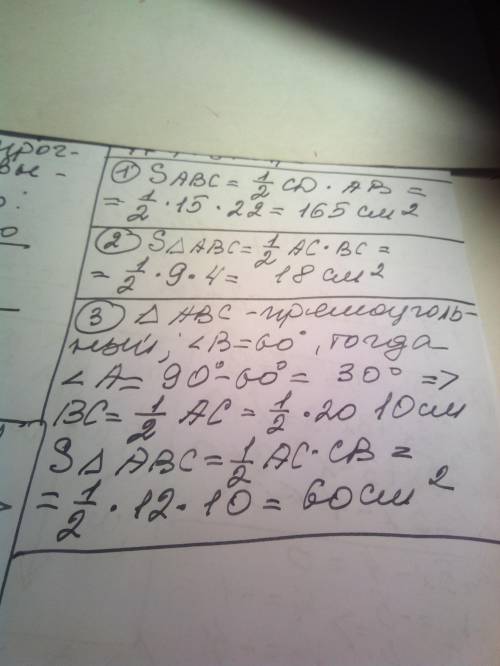 ① SABC = 1/2 CD · AB =
= 1/2 · 15 · 22 = 165 см²
② S△ABC = 1/2 AC · BC =
= 1/2 · 9 · 4 = 18 см²
③ △ ABC - прямоуголь-
ный, ∠B = 60°, тогда
∠A = 90° - 60° = 30° =>
BC = 1/2 AC = 1/2 · 20 10 см
S△ ABC = 1/2 AC · CB =
= 1/2 · 12 · 10 = 60 см²